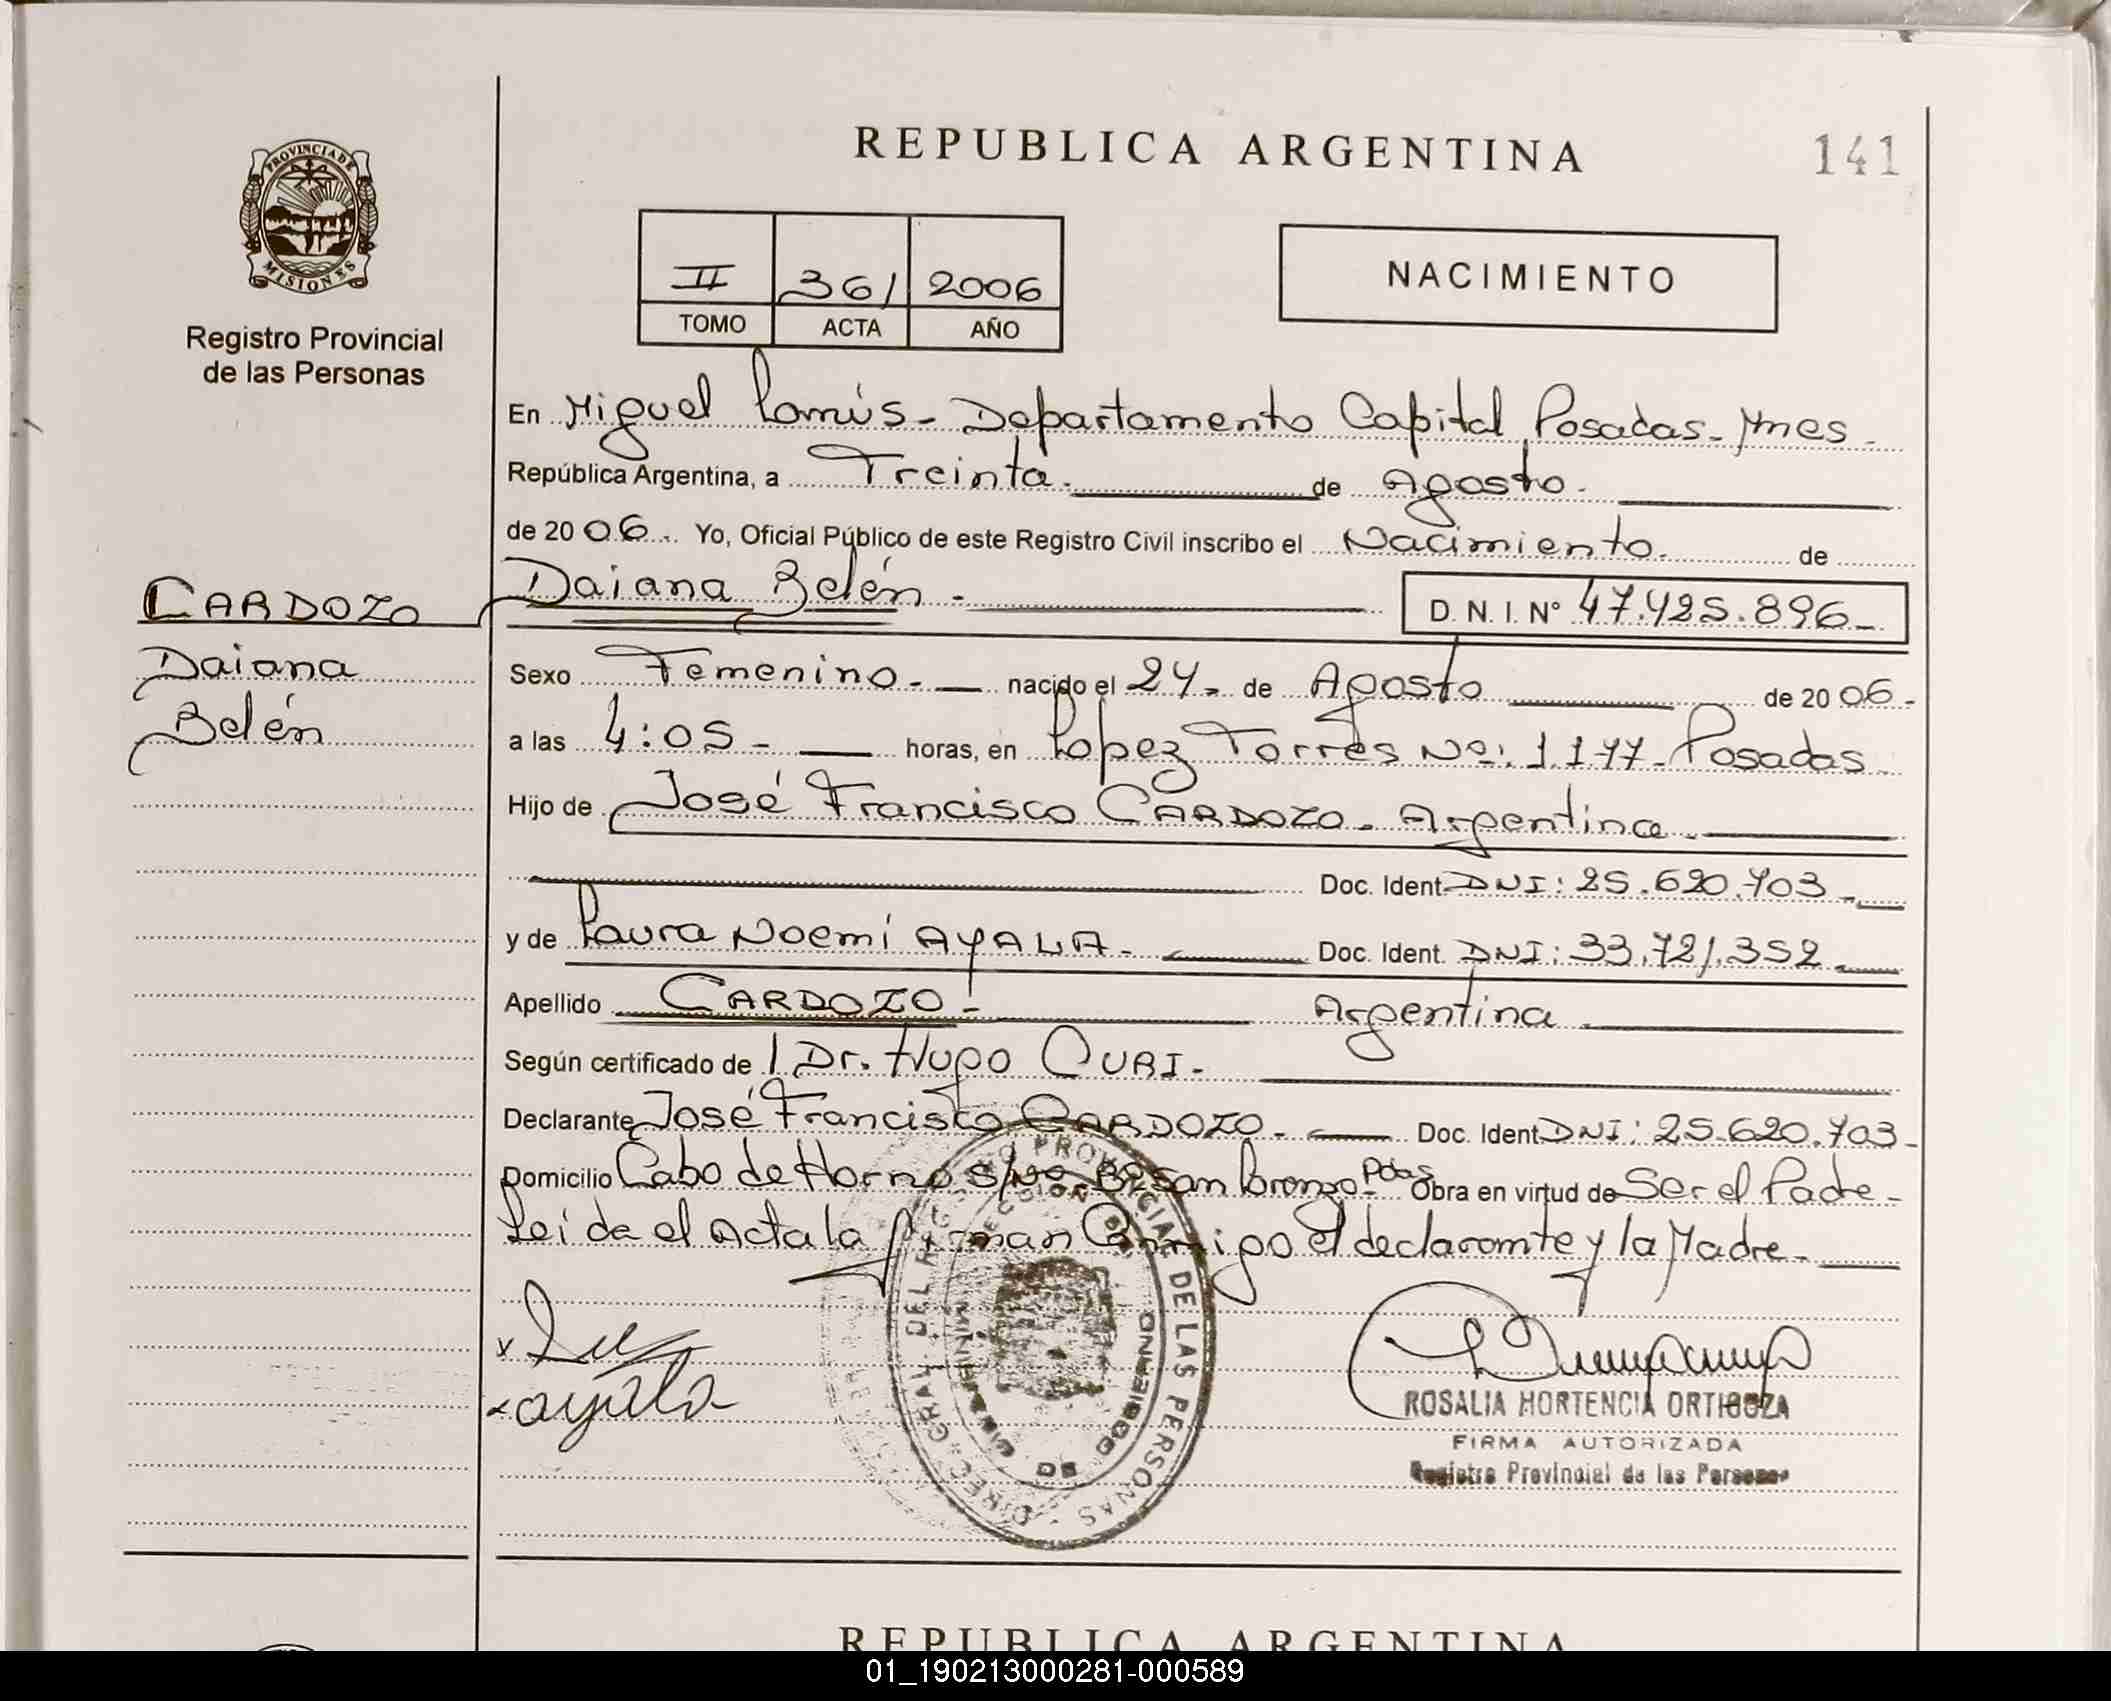 REPUBLICA ARGENTINA
141
PROVINCIA DE
MISIONES
Registro Provincial
de las Personas
II 361 2006
TOMO ACTA AÑO
NACIMIENTO
En Miguel Lanús - Departamento Capital Posadas - Mnes -
República Argentina, a Treinta. de Agosto.
de 2006. Yo, Oficial Público de este Registro Civil inscribo el Nacimiento. de
CARDOZO
Daiana
Belén
Daiana Belén - D. N. I. Nº 47.425.896 -
Sexo Femenino - nacido el 24 - de Agosto de 2006 -
a las 4:05 - horas, en Lopez Torres Nº: 1.177 - Posadas
Hijo de José Francisco CARDOZO - Argentina -
Doc. Ident. DNI: 25.620.703 -
y de Laura Noemí AYALA - Doc. Ident. DNI: 33.721.352 -
Apellido CARDOZO - Argentina -
Según certificado de Dr. Hugo CURI -
Declarante José Francisco CARDOZO - Doc. Ident DNI: 25.620.703 -
Domicilio Cabo de Hornos S/Nº Bº San Lorenzo - Pdas Obra en virtud de Ser el Padre -
Leída el Acta la firman Conmigo el declarante y la Madre -
x
x ayala
DIREC. GRAL. DEL REGISTRO PROVINCIAL DE LAS PERSONAS
MINISTERIO DE GOBIERNO
ROSALIA HORTENCIA ORTIGOZA
FIRMA AUTORIZADA
Registro Provincial de las Personas
REPUBLICA ARGENTINA
01_190213000281-000589